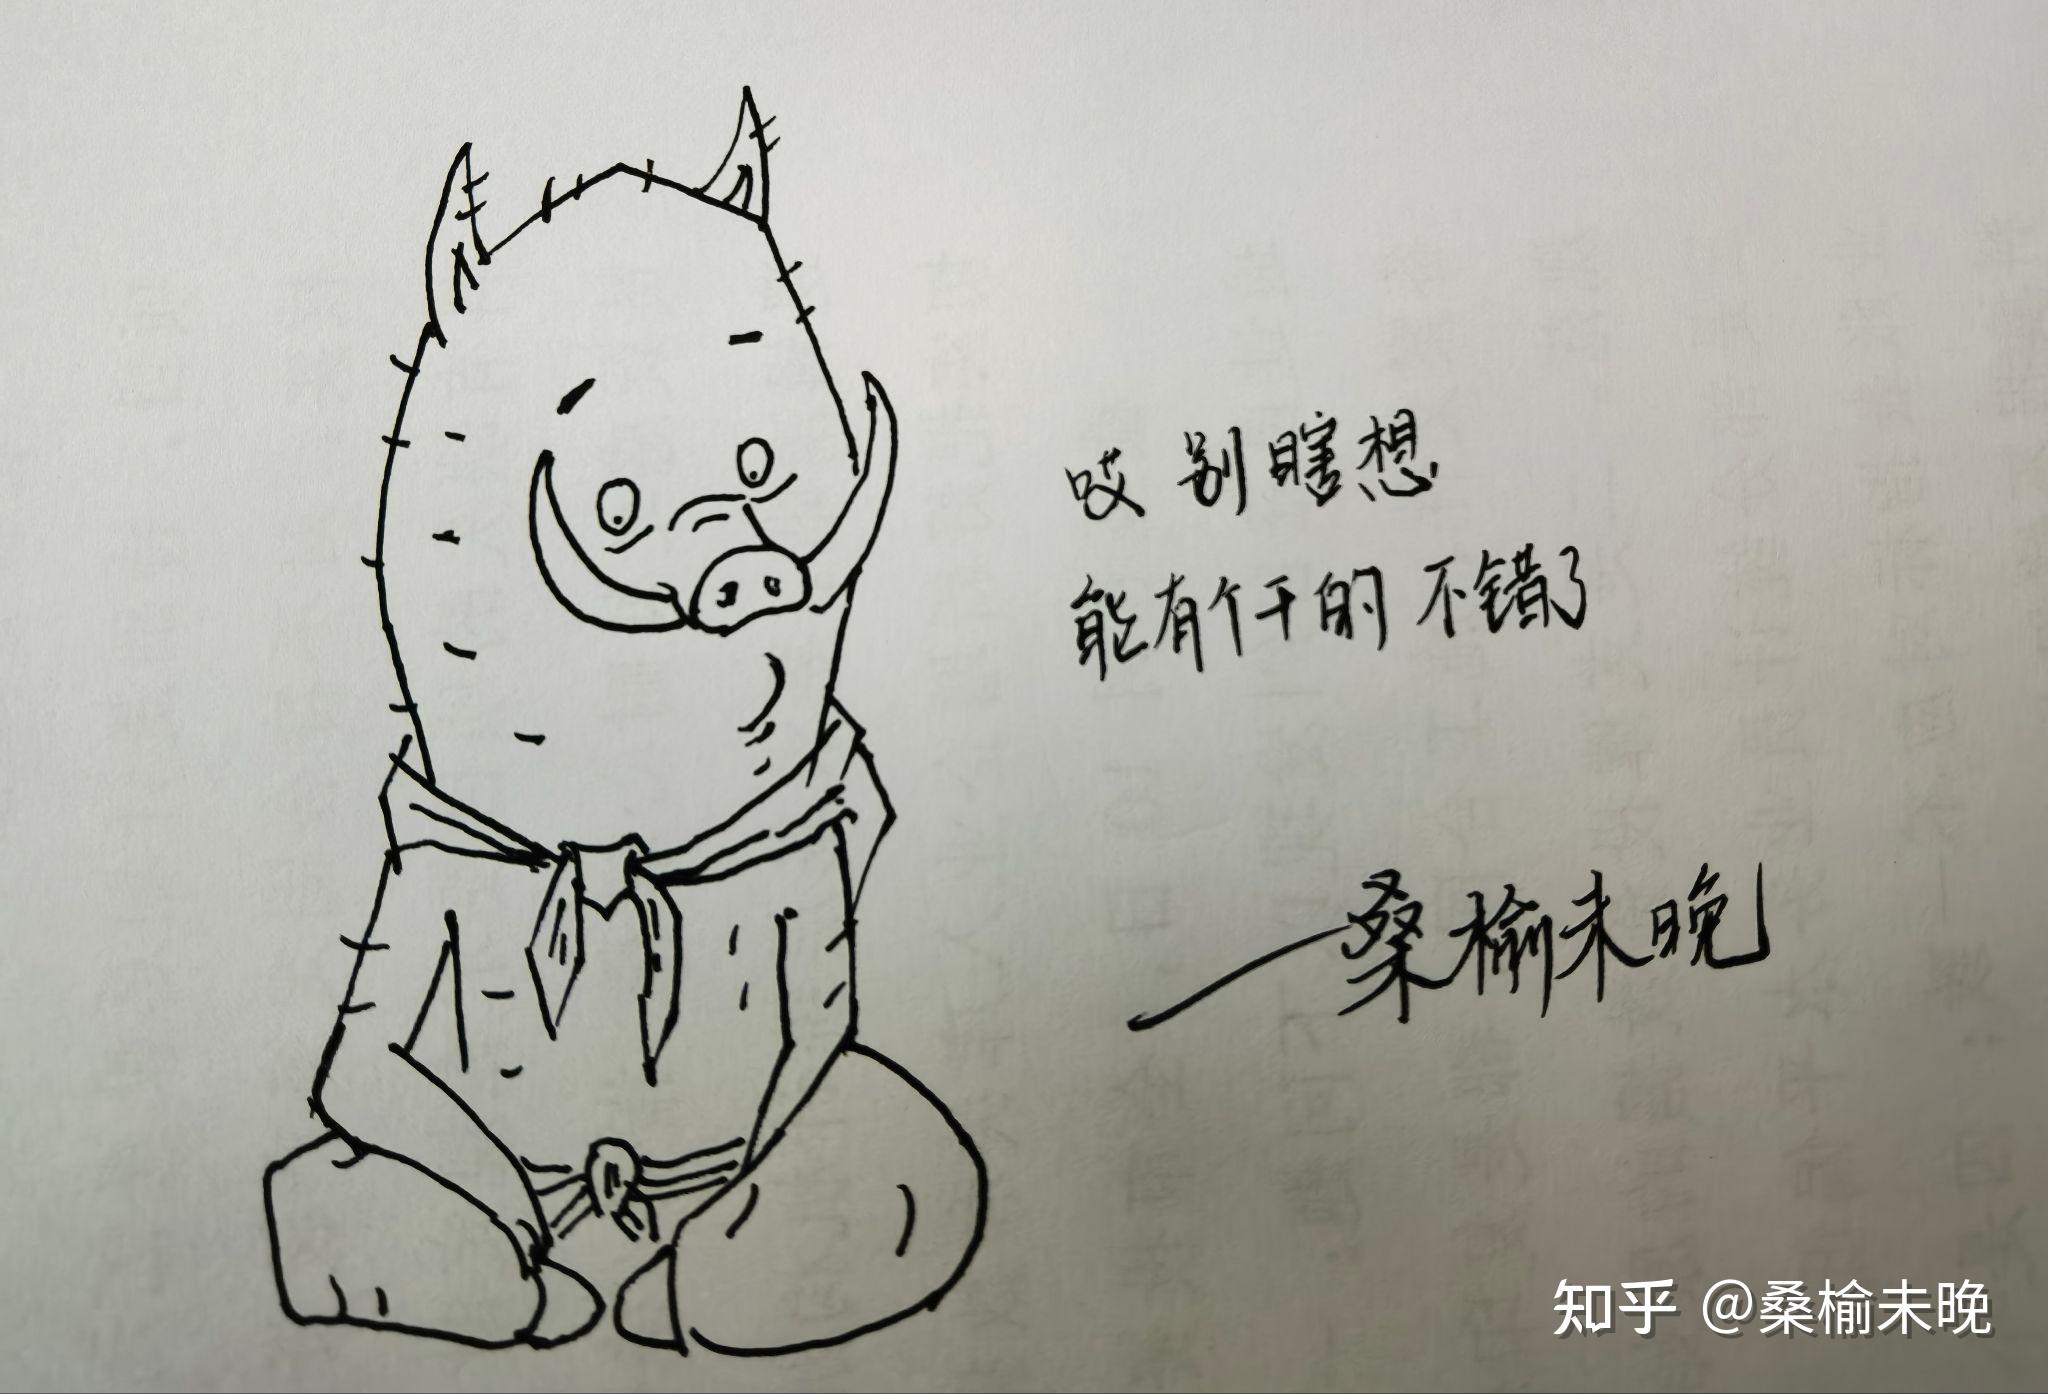 哎 别瞎想
能有个干的 不错了
——桑榆未晚
知乎 @桑榆未晚